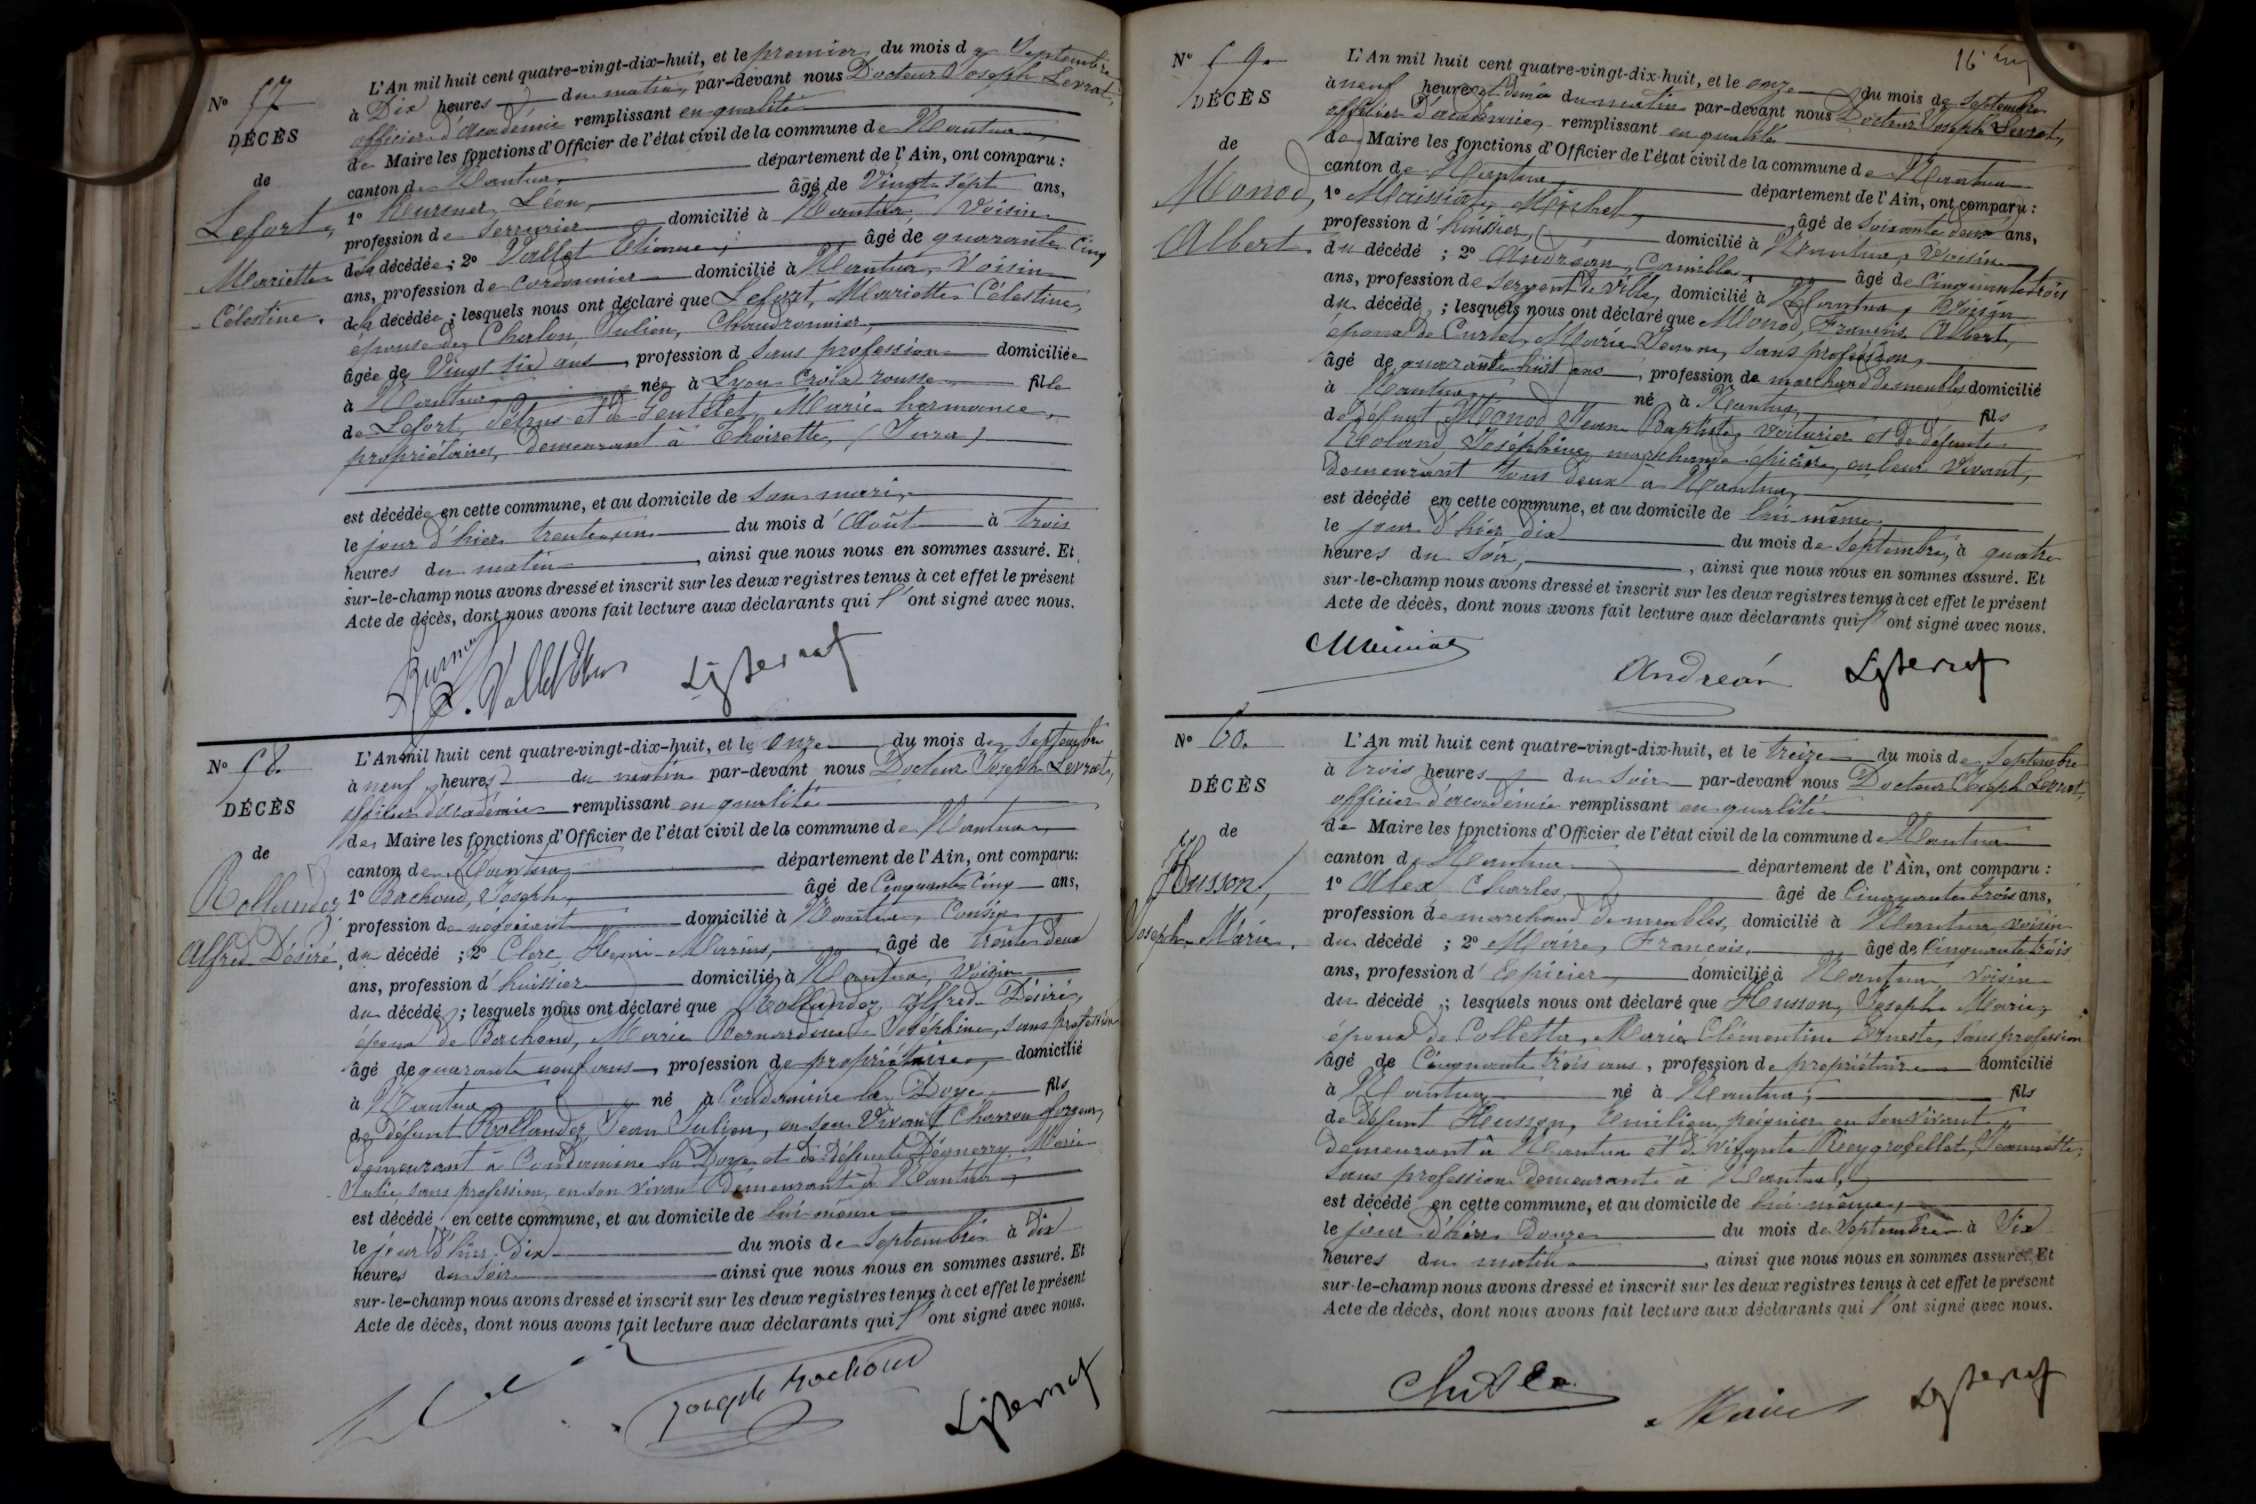 N° 57
DÉCÈS
de
Lefort,
Mariette
Célestine.
L'An mil huit cent quatre-vingt-dix-huit, et le premier du mois de Septembre
à Dix heures du matin, par-devant nous Docteur Joseph Levrat,
officier d'académie remplissant en qualité
de Maire les fonctions d'Officier de l'état civil de la commune de Nantua
canton de Nantua département de l'Ain, ont comparu :
1° Léon, âgé de Vingt-sept ans,
profession de Serrurier domicilié à Nantua, Voisin
de la décédée ; 2° Vallet Etienne, âgé de quarante cinq
ans, profession de cordonnier domicilié à Nantua, Voisin
de la décédée ; lesquels nous ont déclaré que Lefort, Mariette Célestine,
épouse de Charlon, Julien, Chaudronnier,
âgée de Vingt six ans, profession d sans profession domiciliée
à Nantua née à Lyon Croix rousse fille
de Lefort, Pétrus et de Gentelet, Marie hermance,
propriétaires, demeurant à Thoirette, (Jura)
est décédée en cette commune, et au domicile de son mari,
le jour d'hier trente un du mois d'Août à trois
heures du matin, ainsi que nous nous en sommes assuré. Et
sur-le-champ nous avons dressé et inscrit sur les deux registres tenus à cet effet le présent
Acte de décès, dont nous avons fait lecture aux déclarants qui l'ont signé avec nous.
N° 58.
DÉCÈS
de
Rollandez
Alfred Désiré.
L'An mil huit cent quatre-vingt-dix-huit, et le onze du mois de Septembre
à neuf heures du matin par-devant nous Docteur Joseph Levrat,
officier d'académie remplissant en qualité
de Maire les fonctions d'Officier de l'état civil de la commune de Nantua,
canton de Nantua département de l'Ain, ont comparu:
1° Bachoud, Joseph, âgé de Cinquante Cinq ans,
profession de négociant domicilié à Nantua, Cousin
du décédé ; 2° Clerc Henri Marius, âgé de trente deux
ans, profession d'huissier domicilié à Nantua, Voisin
du décédé ; lesquels nous ont déclaré que Rollandez, Alfred Désiré,
époux de Bachoud, Marie Bernardine Joséphine, sans profession
âgé de quarante neuf ans, profession de propriétaire, domicilié
à Nantua né à Condamine la Doye fils
de défunt Rollandez, Jean Julien, en son Vivant Charron forgeur,
demeurant à Condamine la Doye et de défunte Marie
Julie, sans profession, en son vivant demeurant à Nantua,
est décédé en cette commune, et au domicile de lui-même
le jour d'hier dix du mois de Septembre à dix
heures du soir ainsi que nous nous en sommes assuré. Et
sur-le-champ nous avons dressé et inscrit sur les deux registres tenus à cet effet le présent
Acte de décès, dont nous avons fait lecture aux déclarants qui l'ont signé avec nous.
Joseph Bachoud
16
N° 59.
DÉCÈS
de
Monod,
Albert
L'An mil huit cent quatre-vingt-dix-huit, et le onze du mois de Septembre
à neuf heures et demie du matin par-devant nous Docteur Joseph Levrat,
officier d'académie, remplissant en qualité
de Maire les fonctions d'Officier de l'état civil de la commune de Nantua
canton de Nantua département de l'Ain, ont comparu :
1° Maissiat, Michel, âgé de Soixante deux ans,
profession d'huissier, domicilié à Nantua, Voisin
du décédé ; 2° Andréan, Camille, âgé de Cinquante trois
ans, profession de Sergent de Ville, domicilié à Nantua, Voisin
du décédé ; lesquels nous ont déclaré que Monod, Francis Albert,
époux de Curtet, Marie Jeanne, sans profession,
âgé de quarante huit ans, profession de marchand de meubles domicilié
à Nantua, né à Nantua, fils
de défunt Monod Jean Baptiste, voiturier et de défunte
Roland, Joséphine, marchande épicière, en leur Vivant,
demeurant tous deux à Nantua,
est décédé en cette commune, et au domicile de lui même,
le jour d'hier dix du mois de Septembre, à quatre
heures du Soir, ainsi que nous nous en sommes assuré. Et
sur-le-champ nous avons dressé et inscrit sur les deux registres tenus à cet effet le présent
Acte de décès, dont nous avons fait lecture aux déclarants qui l'ont signé avec nous.
Andreán
N° 60.
DÉCÈS
de
Husson,
Joseph Marie.
L'An mil huit cent quatre-vingt-dix-huit, et le treize du mois de Septembre
à trois heures du Soir par-devant nous Docteur Joseph Levrat,
officier d'académie remplissant en qualité
de Maire les fonctions d'Officier de l'état civil de la commune de Nantua
canton de Nantua département de l'Ain, ont comparu :
1° Alex Charles, âgé de Cinquante trois ans,
profession de marchand de meubles, domicilié à Nantua, voisin
du décédé ; 2° Maire, François, âgé de Cinquante trois
ans, profession d'Epicier, domicilié à Nantua, Voisin
du décédé ; lesquels nous ont déclaré que Husson, Joseph Marie,
époux de Colletta, Marie Clémentine Erneste, sans profession
âgé de Cinquante trois ans, profession de propriétaire domicilié
à Nantua né à Nantua, fils
de défunt Husson, Emilien, peignier en son vivant
demeurant à Nantua et d vivante Jeannette,
sans profession demeurant à Nantua,
est décédé en cette commune, et au domicile de lui-même,
le jour d'hier Douze du mois de Septembre à Six
heures du matin, ainsi que nous nous en sommes assuré. Et
sur-le-champ nous avons dressé et inscrit sur les deux registres tenus à cet effet le présent
Acte de décès, dont nous avons fait lecture aux déclarants qui l'ont signé avec nous.
Maire